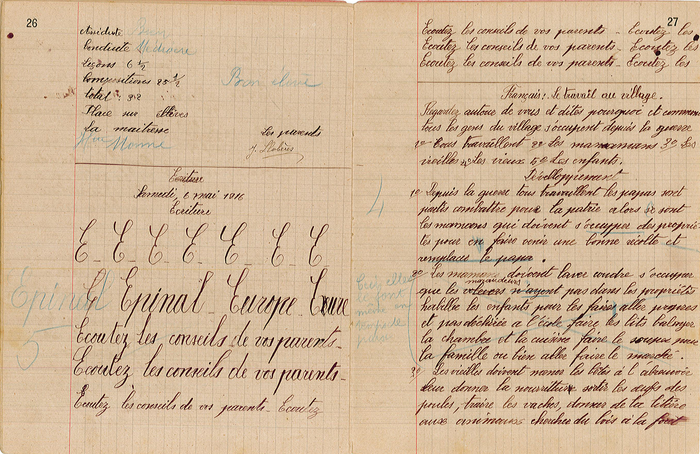 26
Assiduité Bien
Conduite Médiocre
Leçons 6 ½
Compositions 25 ½
total : 32
Place sur élèves
La maîtresse Les parents
Bon élève
Ecriture
Samedi, 6 mai 1916
Ecriture
E E E E E E E
E Epinal Europe Eure
Epinal
5
Ecoutez les conseils de vos parents
Ecoutez les conseils de vos parents
Ecoutez les conseils de vos parents Ecoutez
27
Ecoutez les conseils de vos parents - Ecoutez les
Ecoutez les conseils de vos parents - Ecoutez les
Ecoutez les conseils de vos parents - Ecoutez les
Français : Le travail au village.
Regardez autour de vous et dites pourquoi et comment
tous les gens du village s'occupent depuis la guerre
1º Tous travaillent 2º Les mamans 3º Les
vieilles 4º Les vieux 5º Les enfants.
Développement
4
1º Depuis la guerre tous travaillent les papas sont
partis combattre pour la patrie alors ce sont
les mamans qui doivent s'occuper des proprié-
tés pour en faire venir une bonne récolte et
remplacer le papa.
2º Les mamans doivent laver coudre s'occuper
que les voleurs n'aillent pas dans les propriétés
habiller les enfants pour les faire aller propres
et pas déchirés a l'école faire les lits balayer
la chambre et la cuisine faire le soupe pour
la famille ou bien aller faire le marché.
3º Les vieilles doivent mener les bêtes à l'abreuvoir
leur donner la nourriture sortir les œufs des
poules, traire les vaches, donner de la litière
aux animaux chercher du bois à la forêt